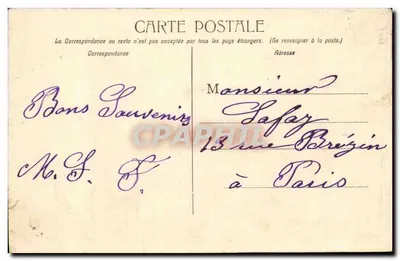 CARTE POSTALE
La Correspondance au recto n'est pas acceptée par tous les pays étrangers. (Se renseigner à la poste.)
Correspondance
Adresse
Bons Souvenirs
M. S. F.
Monsieur
Lafay
13 rue Brézin
à Paris
CPAPHIL